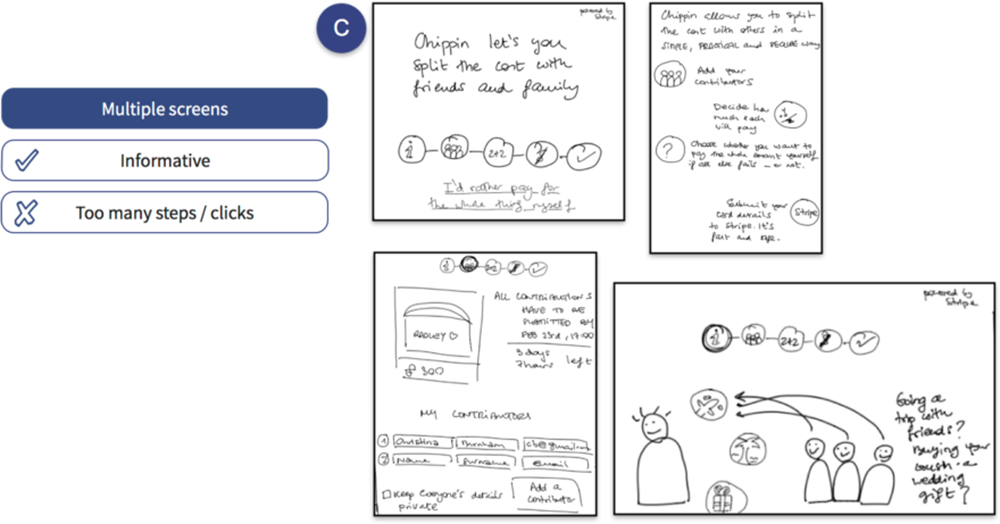 C
Multiple screens
Informative
Too many steps / clicks
powered by
Stripe
Chippin let's you
split the cost with
friends and family
i
2+2
I'd rather pay for
the whole thing myself
Chippin allows you to split
the cost with others in a
SIMPLE, PRACTICAL and SECURE way
Add your
contributors
Decide how
much each
will pay
?
Choose whether you want to
pay the whole amount yourself
if all else fails – or not.
Submit your
card details
to Stripe. It's
fast and safe.
Stripe
i
2+2
RADLEY
£ 300
ALL CONTRIBUTIONS
HAVE TO BE
SUBMITTED BY
FEB 23rd, 17:00
3 days
7 hours left
MY CONTRIBUTORS
1 Christina
2 Name Surname email
Keep everyone's details
private
Add a
contributor
powered by
Stripe
i
2+2
Going a
trip with
friends?
Buying your
a
wedding
gift?